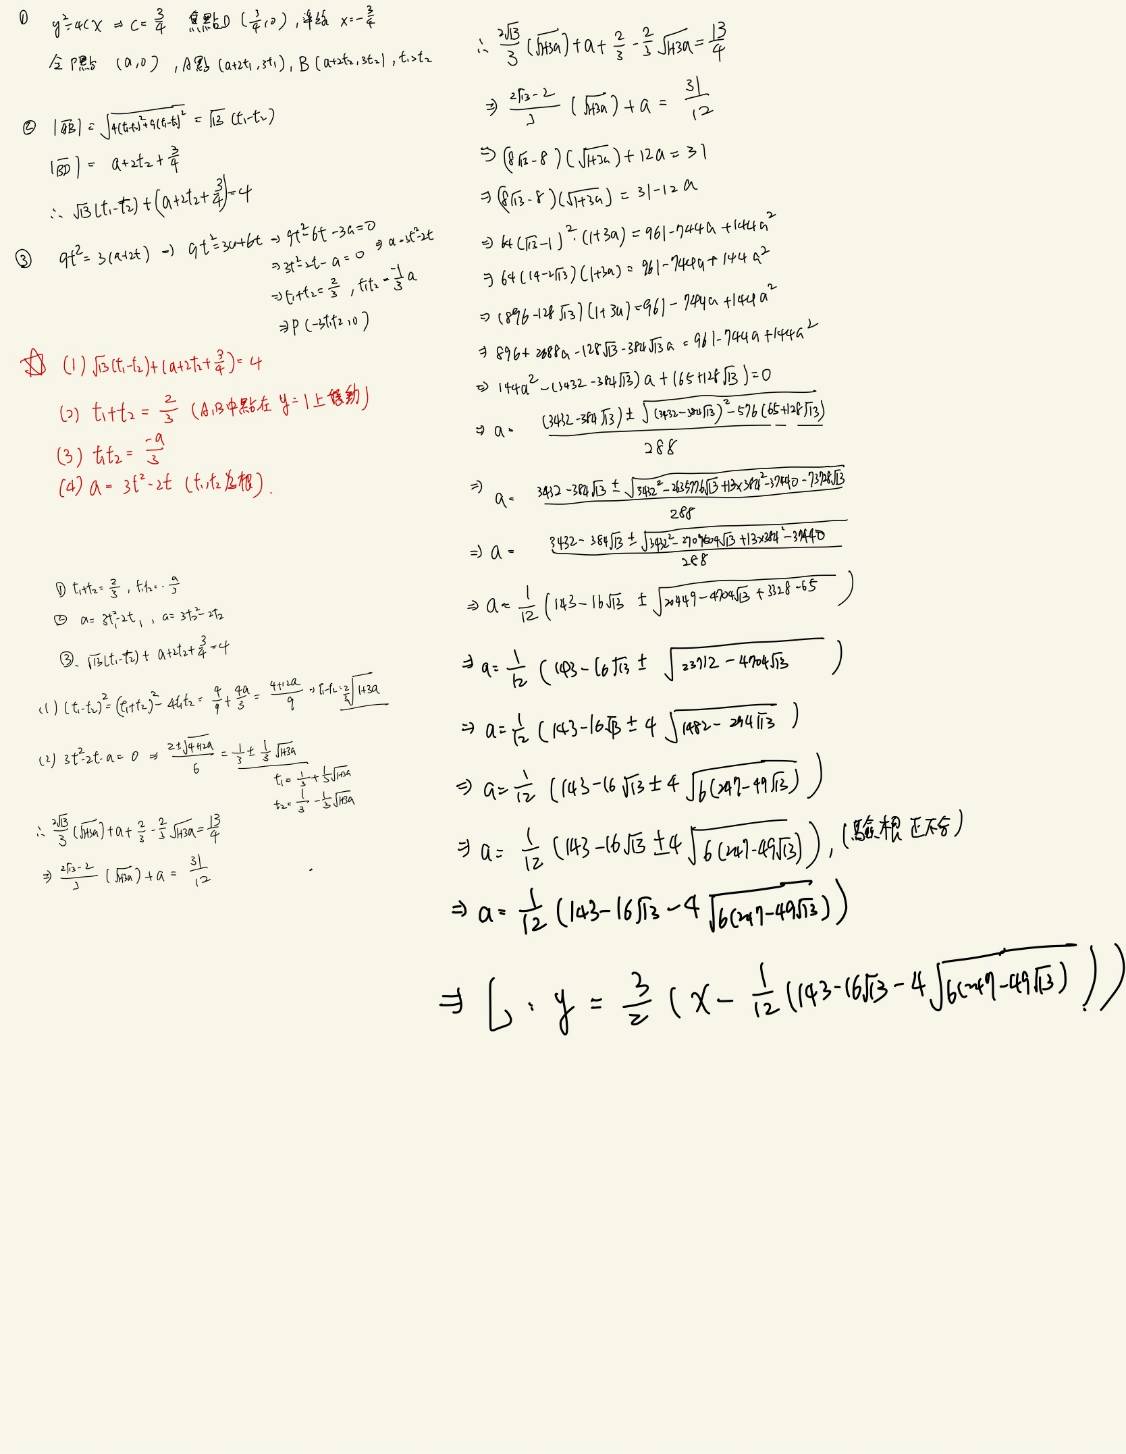 ① y²=4cx ⇒ c=3/4 焦點D(3/4,0),準線 x=-3/4
令P點 (a,0),A點(a+2t₁,3t₁),B(a+2t₂,3t₂),t₁>t₂
② |AB|=√(4(t₁-t₂)²+9(t₁-t₂)²) = √13 (t₁-t₂)
|BD| = a+2t₂+3/4
∴ √13(t₁-t₂)+(a+2t₂+3/4)=4
③ 9t²=3(a+2t) → 9t²=3a+6t → 9t²-6t-3a=0
⇒3t²-2t-a=0 ⇒ a=3t²-2t
⇒t₁+t₂=2/3, t₁t₂=-1/3a
⇒P(-3t₁t₂,0)
☆ (1) √13(t₁-t₂)+(a+2t₂+3/4)=4
(2) t₁+t₂=2/3 (A,B中點在 y=1上移動)
(3) t₁t₂=-a/3
(4) a=3t²-2t (t₁,t₂為根).
① t₁+t₂=2/3, t₁t₂=-a/3
② a=3t₁²-2t₁, a=3t₂²-2t₂
③. √13(t₁-t₂)+a+2t₂+3/4=4
(1) (t₁-t₂)²=(t₁+t₂)²-4t₁t₂=4/9+4a/3=4+12a/9 ⇒t₁-t₂=2/3√1+3a
(2) 3t²-2t-a=0 ⇒ 2±√4+12a/6=1/3±1/3√1+3a
t₁=1/3+1/3√1+3a
t₂=1/3-1/3√1+3a
∴ 2√13/3(√1+3a)+a+2/3-2/3√1+3a=13/4
⇒ 2√13-2/3(√1+3a)+a=31/12
∴ 2√13/3(√1+3a)+a+2/3-2/3√1+3a=13/4
⇒ 2√13-2/3(√1+3a)+a=31/12
⇒(8√13-8)(√1+3a)+12a=31
⇒(8√13-8)(√1+3a)=31-12a
⇒64(√13-1)²·(1+3a)=961-744a+144a²
⇒64(14-2√13)(1+3a)=961-744a+144a²
⇒(896-128√13)(1+3a)=961-744a+144a²
⇒896+2688a-128√13-384√13a=961-744a+144a²
⇒144a²-(3432-384√13)a+(65+128√13)=0
⇒a=(3432-384√13)±√(3432-384√13)²-576(65+128√13)/288
⇒a=3432-384√13±√3432²-2635776√13+13×384²-37440-73728√13/288
⇒a=3432-384√13±√3432²-2709504√13+13×384²-37440/288
⇒a=1/12(143-16√13±√20449-4704√13+3328-65)
⇒a=1/12(143-16√13±√23712-4704√13)
⇒a=1/12(143-16√13±4√1482-294√13)
⇒a=1/12(143-16√13±4√6(247-49√13))
⇒a=1/12(143-16√13±4√6(247-49√13)),(驗根正不合)
⇒a=1/12(143-16√13-4√6(247-49√13))
⇒L:y=3/2(x-1/12(143-16√13-4√6(247-49√13)))